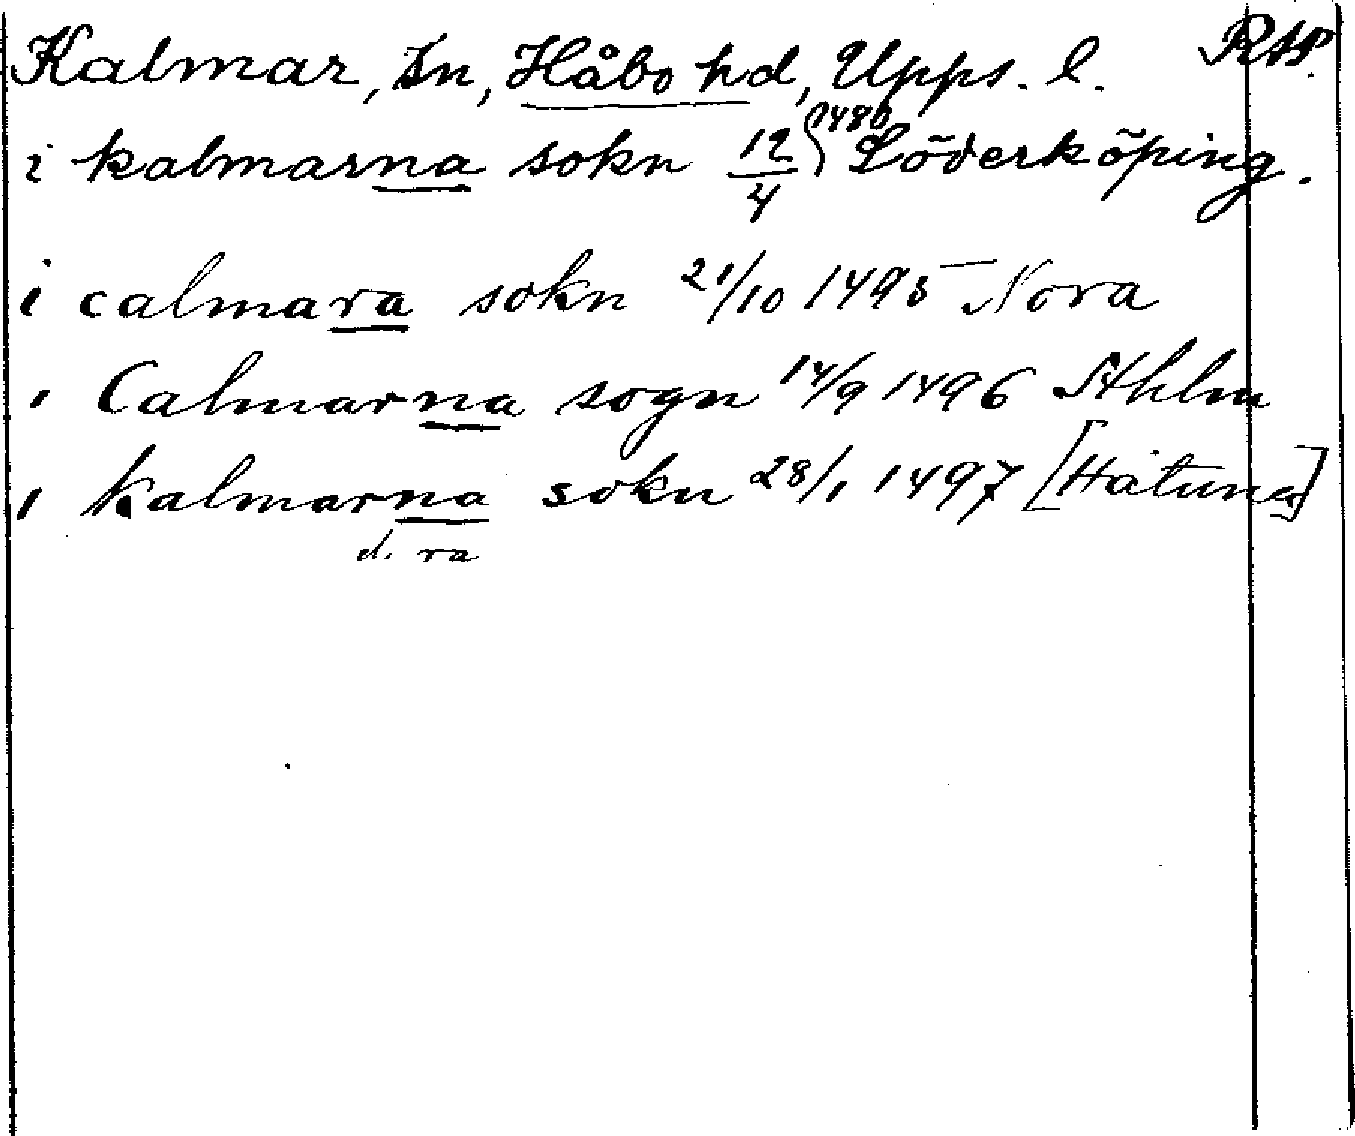 Kalmar, Sn, Håbo hd, Upps. l. RAP.
i kalmarna sokn 12/4 1480 Söderköping.
i calmara sokn 21/10 1495 Nora
i Calmarna sogn 14/9 1496 Sthlm
i kalmarna sokn 28/1 1497 [Håtuna]
d. ra